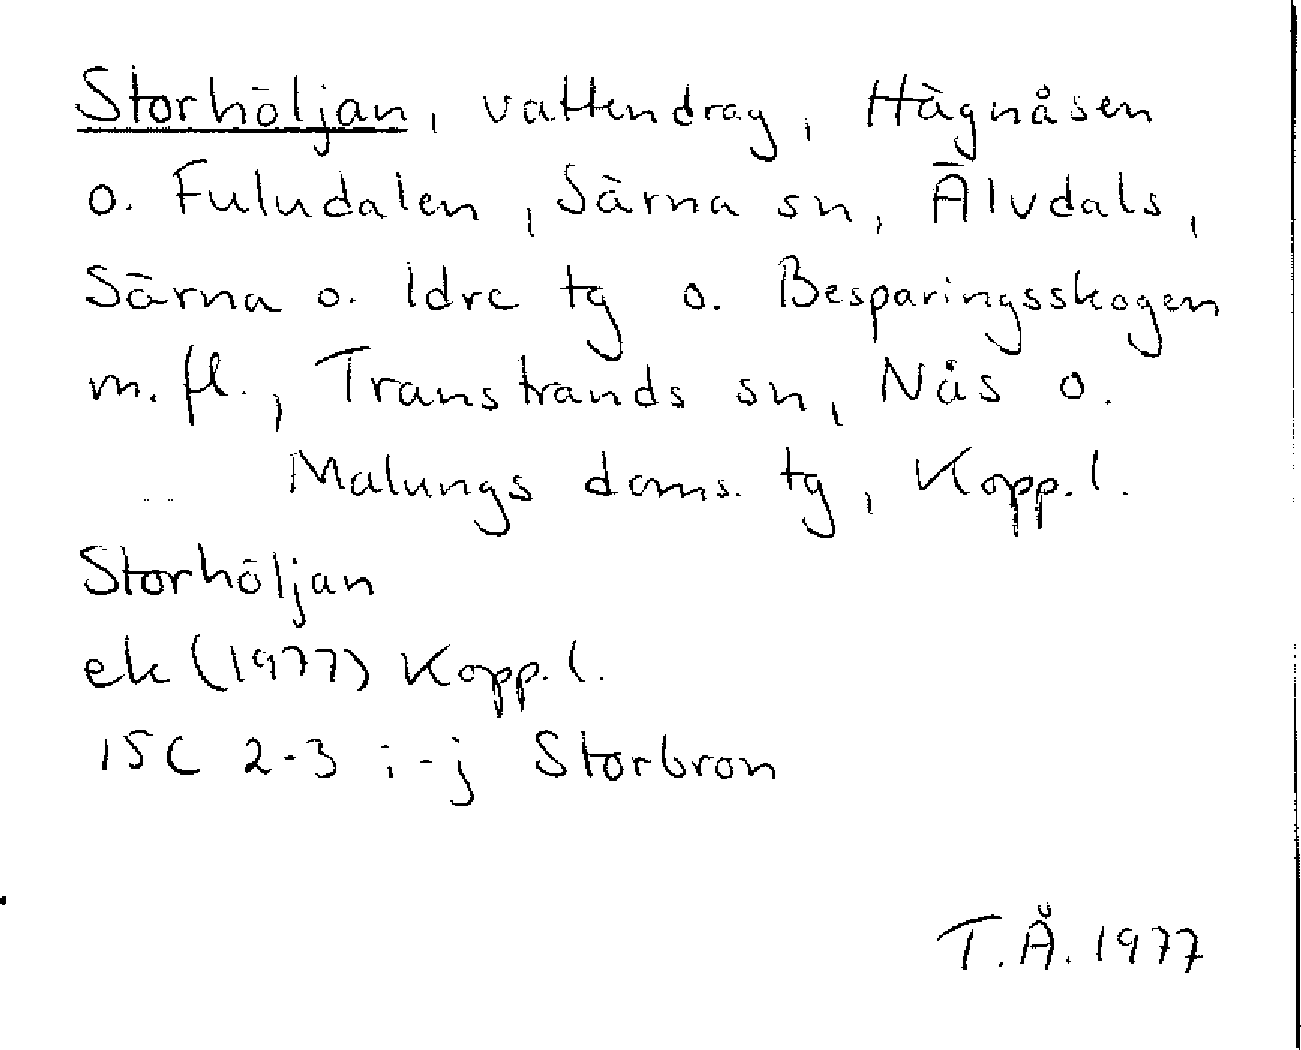 Storhöljan, vattendrag, Hägnåsen
o. Fuludalen, Särna sn, Älvdals,
Särna o. Idre tg o. Besparingsskogen
m. fl., Transtrands sn, Nås o.
Malungs doms. tg, Kopp. l.
Storhöljan
ek (1977) Kopp. l.
15C 2-3 i-j Storbron
T.Å. 1977